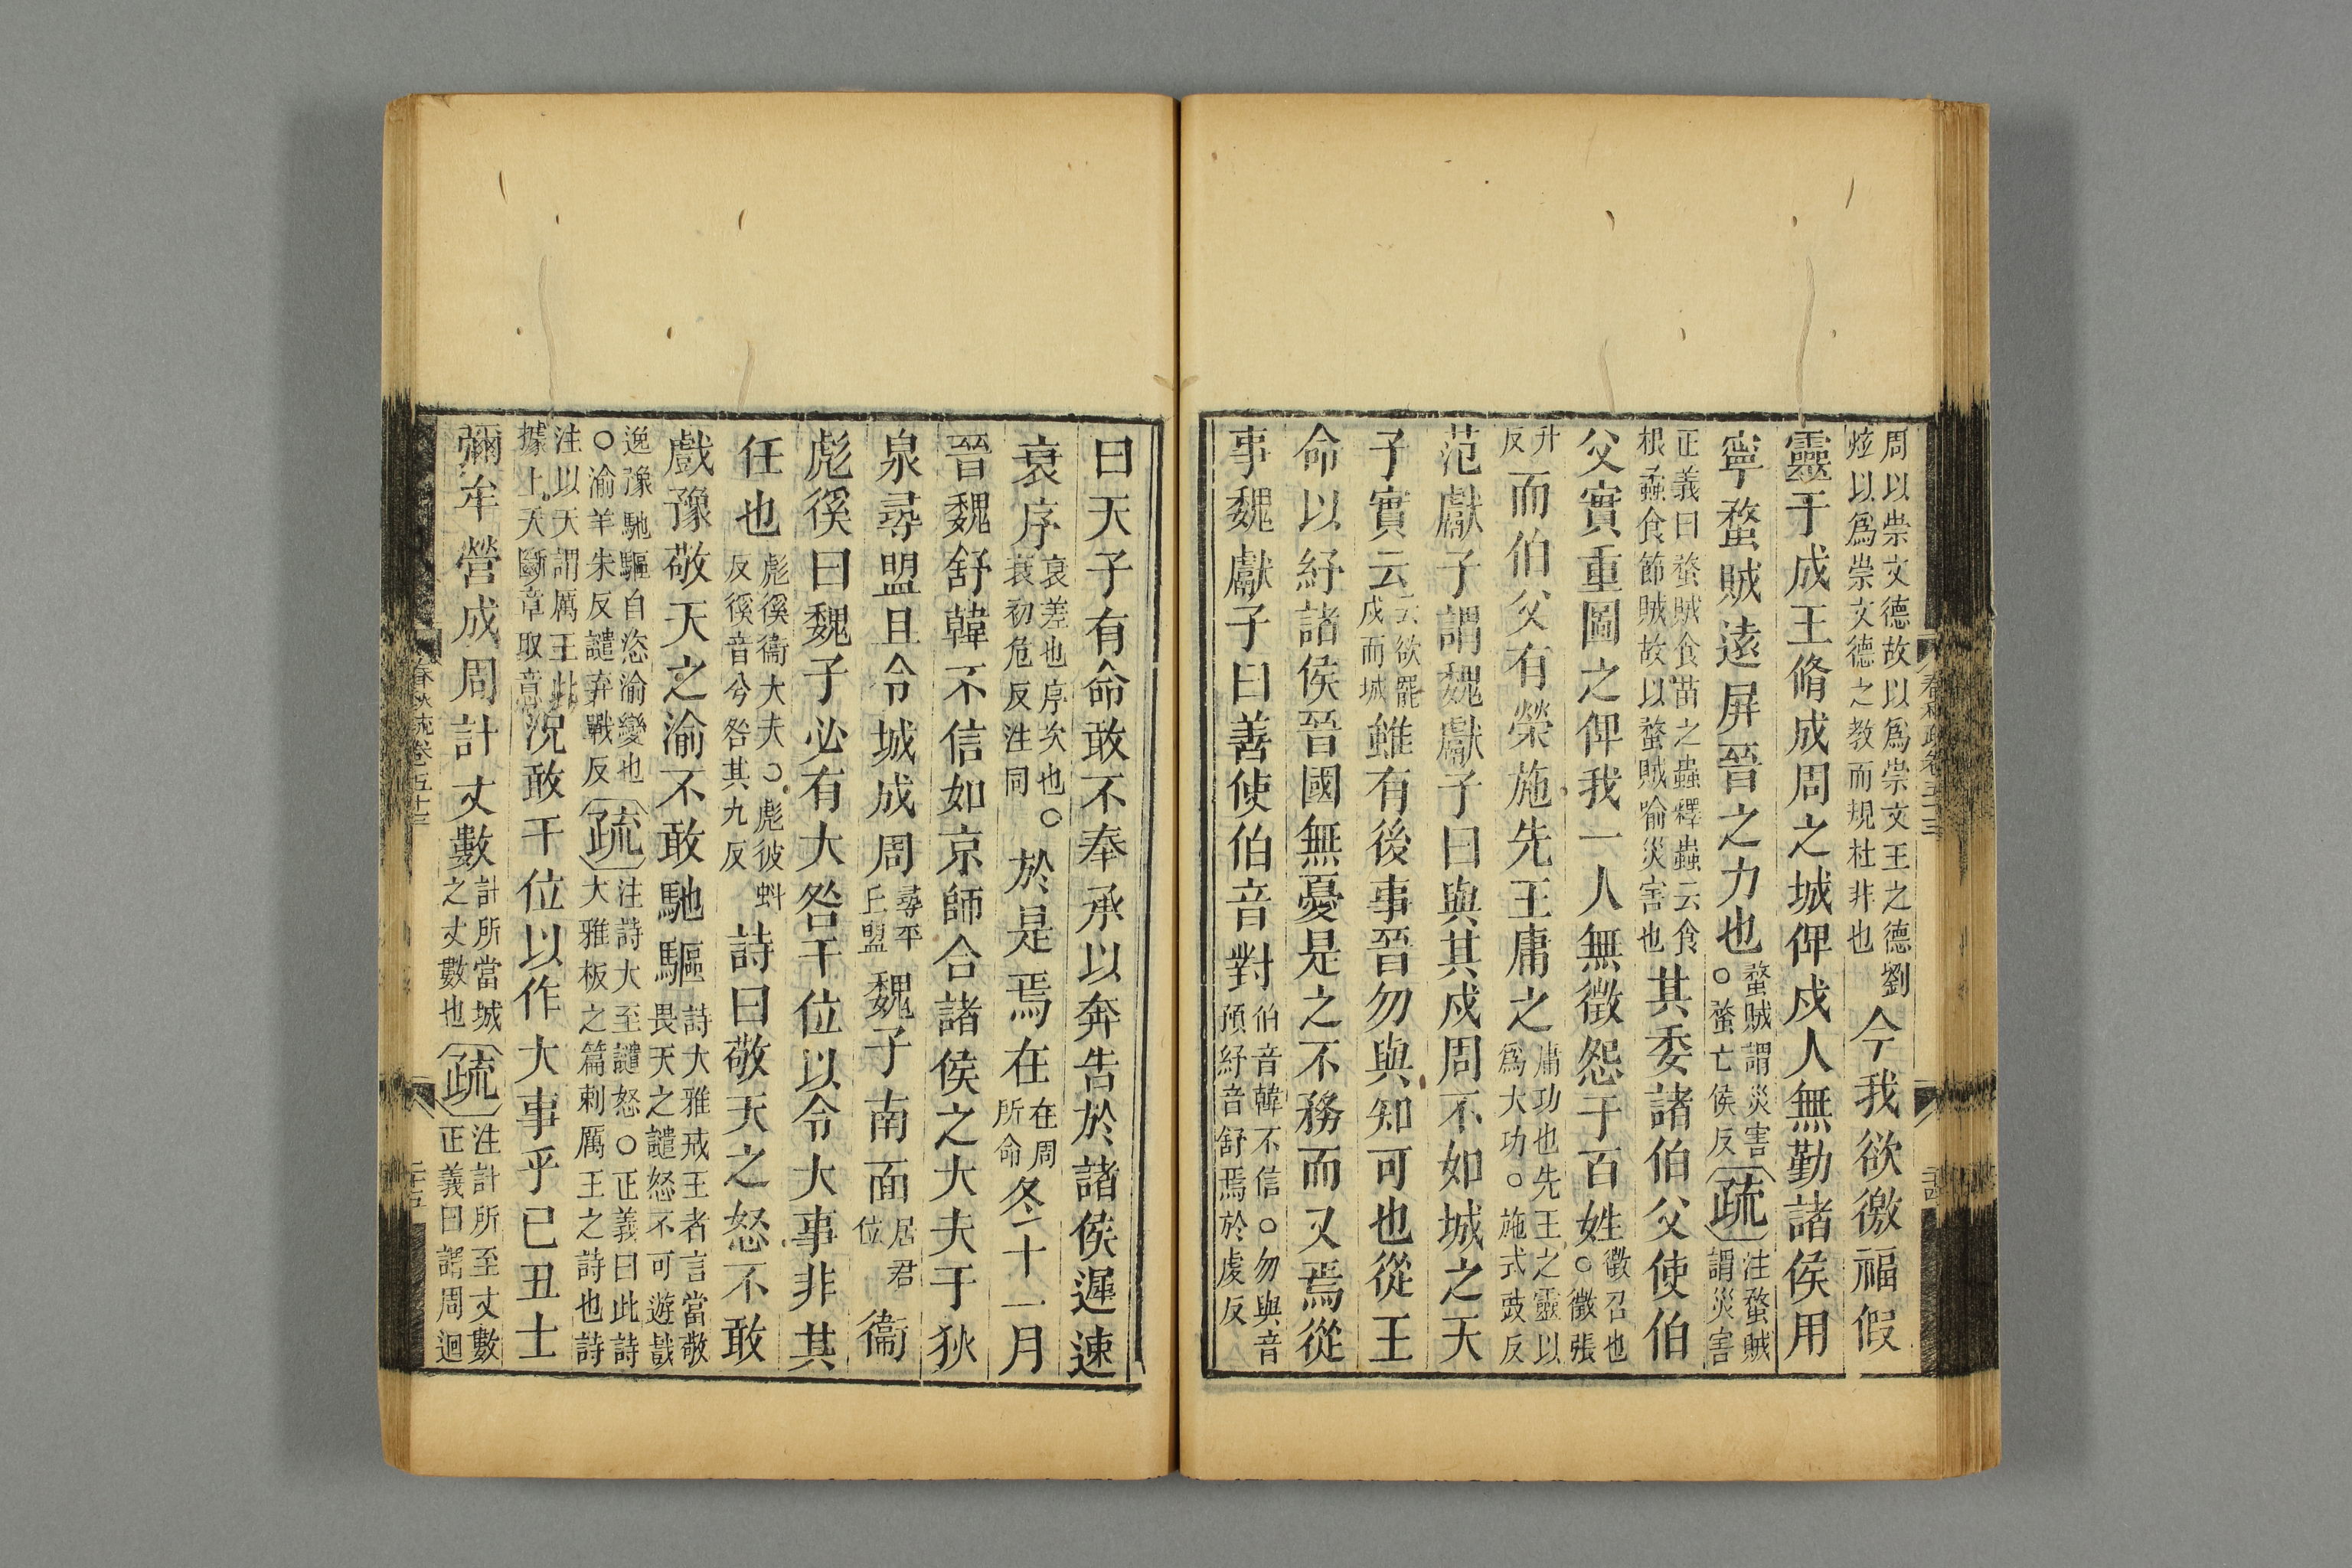 周以崇文德故以為崇文王之德劉
炫以為崇文德之教而規杜非也
今我欲徼福假
靈于成王脩成周之城俾戍人無勤諸侯用
寧蝥賊遠屏晉之力也
蝥賊謂災害
○蝥亡侯反
疏
注蝥賊
謂災害
正義曰蝥賊食苗之蟲釋蟲云食
根蟊食節賊故以蝥賊喻災害也
其委諸伯父使伯
父實重圖之俾我一人無徵怨于百姓
徵召也
○徵張
升
反
而伯父有榮施先王庸之
庸功也先王之靈以
為大功○施式豉反
范獻子謂魏獻子曰與其戍周不如城之天
子實云
云欲罷
戍而城
雖有後事晉勿與知可也從王
命以紓諸侯晉國無憂是之不務而又焉從
事魏獻子曰善使伯音對
伯音韓不信○勿與音
預紓音舒焉於虔反
春秋疏卷五十三
曰天子有命敢不奉承以奔告於諸侯遲速
衰序
衰差也序次也○
衰初危反注同
於是焉在
在周
所命
冬十一月
晉魏舒韓不信如京師合諸侯之大夫于狄
泉尋盟且令城成周
尋平
丘盟
魏子南面
居君
位
衞
彪徯曰魏子必有大咎干位以令大事非其
任也
彪徯衞大夫○彪彼虯
反徯音兮咎其九反
詩曰敬天之怒不敢
戲豫敬天之渝不敢馳驅
詩大雅戒王者言當敬
畏天之譴怒不可遊戲
逸豫馳驅自恣渝變也
○渝羊朱反譴弃戰反
疏
注詩大至譴怒○正義曰此詩
大雅板之篇刺厲王之詩也詩
注以天謂厲王此
據上天斷章取意
況敢干位以作大事乎己丑士
彌牟營成周計丈數
計所當城
之丈數也
疏
注計所至丈數
正義曰謂周迴
春秋疏卷五十三
二十五